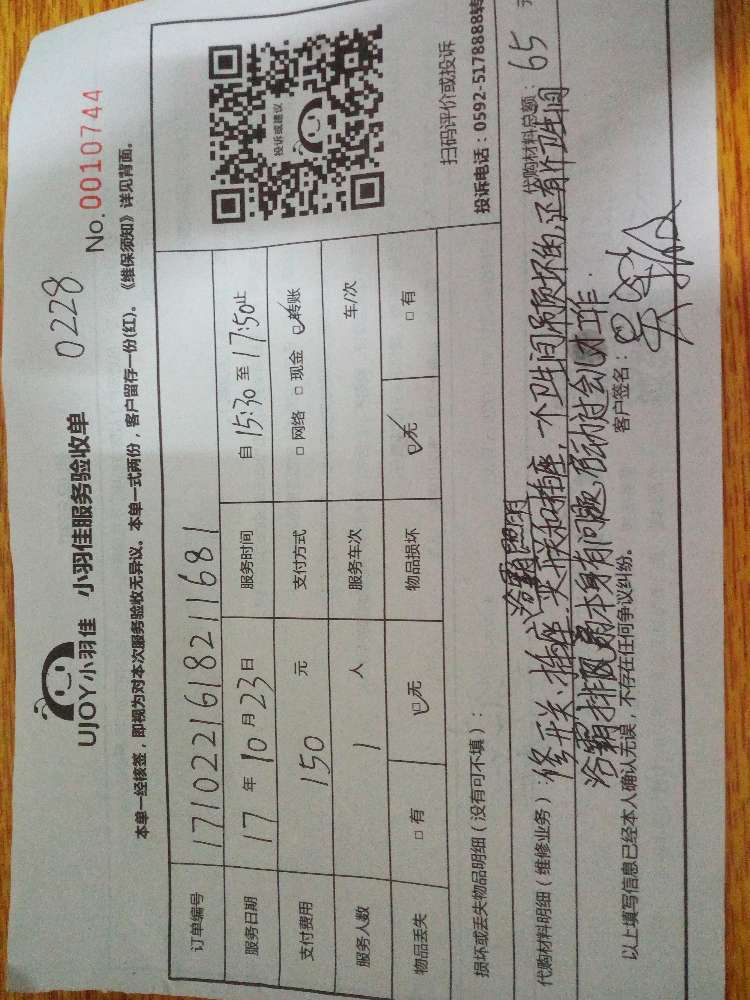 UJOY小羽佳 小羽佳服务验收单 0228
本单一经核签，即视为对本次服务验收无异议。本单一式两份，客户留存一份(红)。《维保须知》详见背面。
No.0010744
订单编号 1710221618211681
服务日期 17年10月23日 服务时间 自15:30至17:50止
支付费用 150 元 支付方式 □网络 □现金 ☑转账
服务人数 1 人 服务车次 车/次
物品丢失 □有 ☑无 物品损坏 ☑无 □有
投诉或建议
扫码评价或投诉
投诉电话：0592-5178888转
损坏或丢失物品明细（没有可不填）：
代购材料明细（维修业务）： 代购材料总额：65 元
浴霸照明
修开关、插座、关联和插座，一个卫生间吊顶坏的，还有个卫生间
浴霸排风扇本身有问题，启动过会儿才工作.
以上填写信息已经本人确认无误，不存在任何争议纠纷。 客户签名：